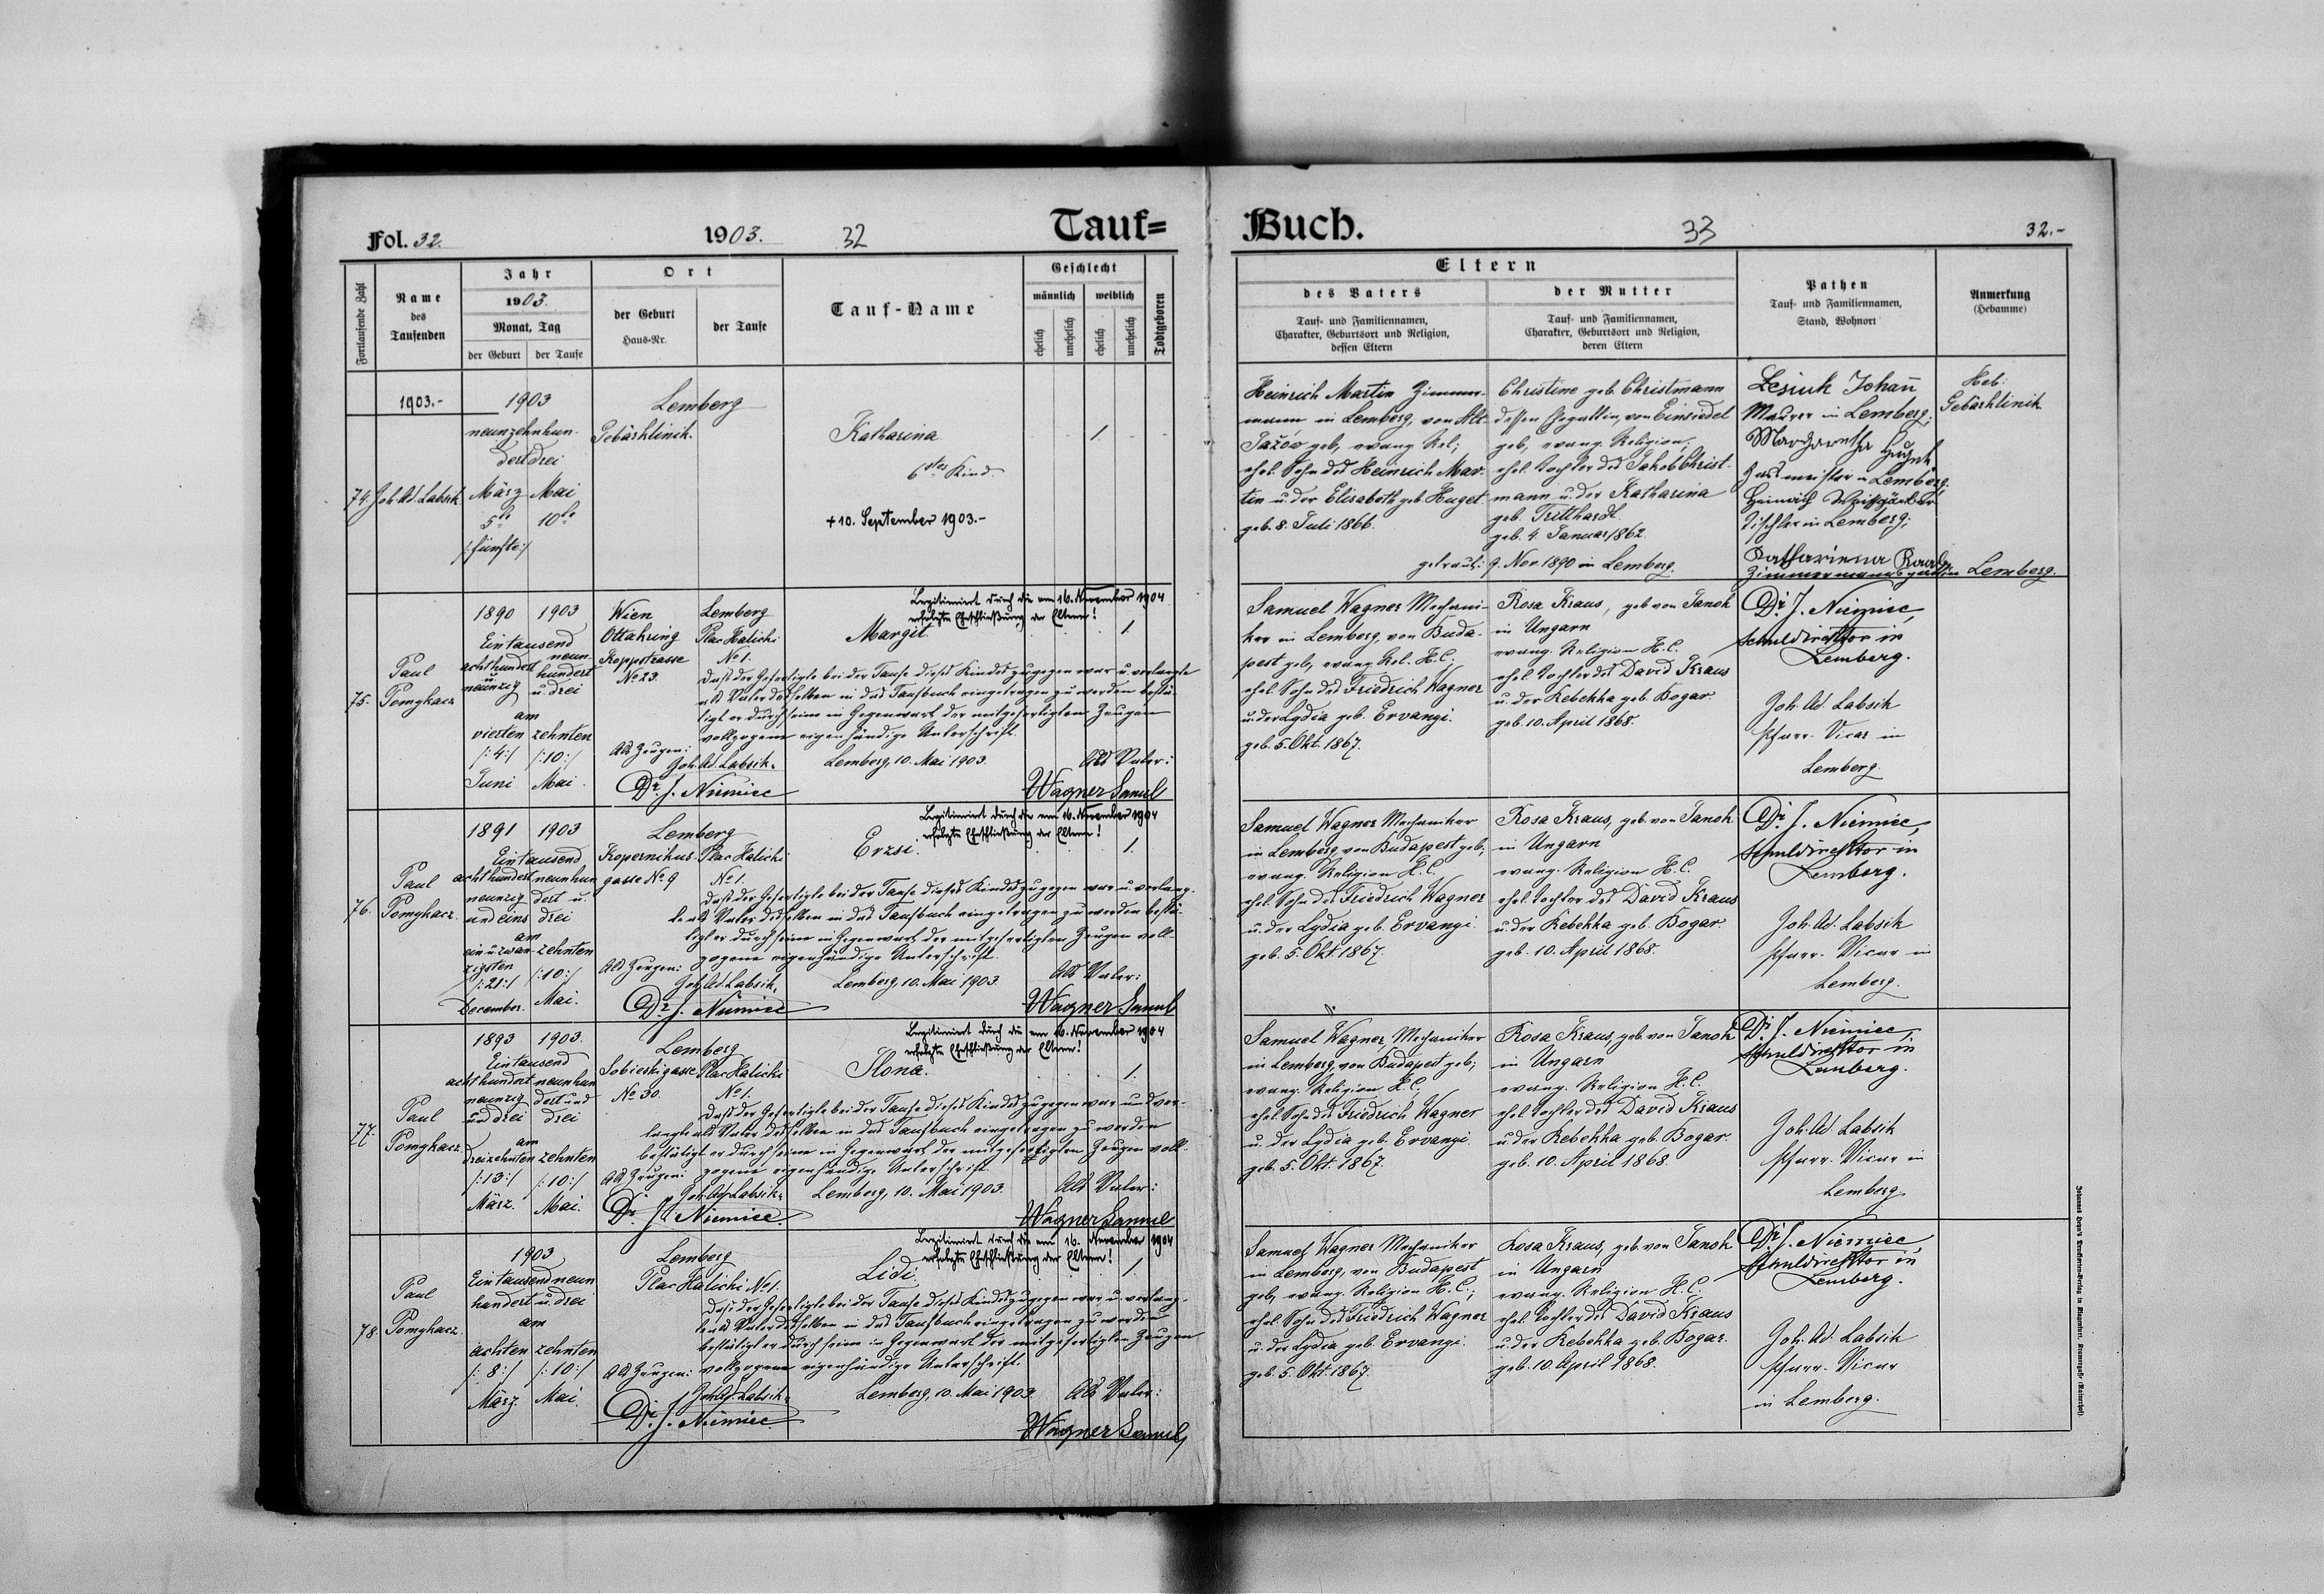 Fol. 32.
1903.
32
Tauf=
Buch.
33
32.-
Fortlaufende Zahl
Name
des
Taufenden
Jahr
1903.
Monat, Tag
der Geburt
der Taufe
Ort
der Geburt
Haus-Nr.
der Taufe
Tauf-Name
Geschlecht
männlich
weiblich
ehelich
unehelich
ehelich
unehelich
Todtgeboren
Eltern
des Vaters
Tauf- und Familiennamen,
Charakter, Geburtsort und Religion,
dessen Eltern
der Mutter
Tauf- und Familiennamen,
Charakter, Geburtsort und Religion,
deren Eltern
Pathen
Tauf- und Familiennamen,
Stand, Wohnort
Anmerkung
(Hebamme)
1903.-
74. Joh. Ad. Labsik
1903
neunzehnhun-
dertdrei
März Mai
5te 10te
/:fünfte:/
Lemberg
Gebärklinik.
Katharina
1.
6tes Kind
+ 10. September 1903.-
Heinrich Martin Zimmer-
mann in Lemberg, von Alt-
Jažow geb, evang Rel;
ehel. Sohn des Heinrich Mar-
tin u. der Elisabeth geb. Huget
geb. 8. Juli 1866.
Christine geb. Christmann
dessen Ehegattin, von Einsiedel
geb, evang. Religion;
ehel. Tochter des Jakob Christ-
mann u. der Katharina
geb. Tritthardt
geb. 4. Januar 1862.
getraut: 9. Nov. 1890 in Lemberg.
Lesiuk Johan
Maurer in Lemberg;
Margaretha
in Lemberg;
Heinrich
Tischler in Lemberg;
Kathariena
Zimmermannsgattin Lemberg.
Heb:
Gebärklinik
75.
Paul
Pomykacz
1890 1903
Eintausend
achthundert neun-
u. hundert
neunzig u. drei
am
vierten zehnten
/:4:/ /:10:/
Juni Mai
Wien
Ottakring
Koppstrasse
No 23
Lemberg
Plac Halicki
No 1.
Legitimiert durch die am 16. November 1904
erfolgte Eheschließung der Eltern!
Margit
1.
Dass der Gefertigte bei der Taufe dieses Kindes zugegen war u. verlangte
als Vater desselben in das Taufbuch eingetragen zu werden bestä-
tigt er durch seine in Gegenwart der mitgefertigten Zeugen
vollzogene eigenhändige Unterschrift.
Als Zeugen:
Joh. Ad. Labsik.
Dr. J. Niemiec
Lemberg, 10. Mai 1903.
Als Vater:
Wagner Samul
Samuel Wagner Mechani-
ker in Lemberg, von Buda-
pest geb, evang. Rel. H.C;
ehel. Sohn des Friedrich Wagner
u. der Lydia geb. Ervangi.
geb. 5. Okt. 1867.
Rosa Kraus, geb von Janok
in Ungarn
evang. Religion H.C.
ehel. Tochter des David Kraus
u. der Rebekka geb. Bogar
geb. 10. April 1868.
Dr. J. Niemiec,
Schuldirektor in
Lemberg.
Joh. Ad. Labsik
Pfarr-Vicar in
Lemberg.
76.
Paul
Pomykacz.
1891 1903
Eintausend
achthundert neunhun
neunzig dert u.
und eins drei
am
ein u. zwan- zehnten
zigsten
/:21:/ /:10:/
December. Mai.
Lemberg
Kopernikus-
gasse No 9
Plac Halicki
No 1.
Legitimiert durch die am 16. November 1904
erfolgte Eheschließung der Eltern!
Erzsi.
1.
Dass der Gefertigte bei der Taufe dieses Kindes zugegen war u. verlang-
te als Vater desselben in das Taufbuch eingetragen zu werden bestä-
tigt er durch seine in Gegenwart der mitgefertigten Zeugen voll-
zogene eigenhändige Unterschrift.
Als Zeugen:
Joh. Ad. Labsik.
Dr. J. Niemiec
Lemberg, 10. Mai 1903.
Als Vater:
Wagner Samul
Samuel Wagner Mechaniker
in Lemberg, von Budapest geb,
evang. Religion H.C.
ehel. Sohn des Friedrich Wagner
u. der Lydia geb. Ervangi.
geb. 5. Okt. 1867.
Rosa Kraus, geb. von Janok
in Ungarn
evang. Religion H.C.
ehel. Tochter des David Kraus
u. der Rebekka geb. Bogar.
geb. 10. April 1868.
Dr. J. Niemiec,
Schuldirektor in
Lemberg.
Joh. Ad. Labsik
Pfarr-Vicar in
Lemberg.
77.
Paul
Pomykacz.
1893 1903.
Eintausend
achthundert neunhun
neunzig dert und
und drei drei
am
dreizehnten zehnten
/:13:/ /:10:/
März. Mai.
Lemberg
Sobieskigasse
No 30.
Plac Halicki
No 1.
Legitimiert durch die am 16. November 1904
erfolgte Eheschließung der Eltern!
Ilona.
1.
Dass der Gefertigte bei der Taufe dieses Kindes zugegen war und ver-
langte als Vater desselben in das Taufbuch eingetragen zu werden
bestätigt er durch seine in Gegenwart der mitgefertigten Zeugen voll-
zogene eigenhändige Unterschrift.
Als Zeugen:
Joh. Ad. Labsik.
Dr. J. Niemiec.
Lemberg, 10. Mai 1903.
Als Vater:
Wagner Samul
Samuel Wagner, Mechaniker
in Lemberg, von Budapest geb;
evang. Religion H.C;
ehel. Sohn des Friedrich Wagner
u. der Lydia geb. Ervangi.
geb. 5. Okt. 1867.
Rosa Kraus, geb. von Janok
in Ungarn
evang. Religion H.C.
ehel. Tochter des David Kraus
u. der Rebekka geb. Bogar.
geb. 10. April 1868.
Dr. J. Niemiec,
Schuldirektor in
Lemberg.
Joh. Ad. Labsik
Pfarr-Vicar in
Lemberg.
78.
Paul
Pomykacz.
1903
Eintausendneun
hundert u. drei
am
achten zehnten
/:8:/ /:10:/
März. Mai.
Lemberg
Plac Halicki No 1.
Legitimiert durch die am 16. November 1904
erfolgte Eheschließung der Eltern!
Lidi
1.
Dass der Gefertigte bei der Taufe dieses Kindes zugegen war u. verlang-
te als Vater desselben in das Taufbuch eingetragen zu werden
bestätigt er durch seine in Gegenwart der mitgefertigten Zeugen
vollzogene eigenhändige Unterschrift.
Als Zeugen:
Joh. Ad. Labsik.
Dr. J. Niemiec
Lemberg, 10. Mai 1903.
Als Vater:
Wagner Samul
Samuel Wagner Mechaniker
in Lemberg, von Budapest
geb, evang. Religion H.C.;
ehel. Sohn des Friedrich Wagner
u. der Lydia geb. Ervangi.
geb. 5. Okt. 1867.
Rosa Kraus, geb. von Janok
in Ungarn
evang. Religion H.C.;
ehel. Tochter des David Kraus
u. der Rebekka geb. Bogar.
geb. 10. April 1868.
Dr. J. Niemiec,
Schuldirektor in
Lemberg.
Joh. Ad. Labsik
Pfarr-Vicar
in Lemberg.